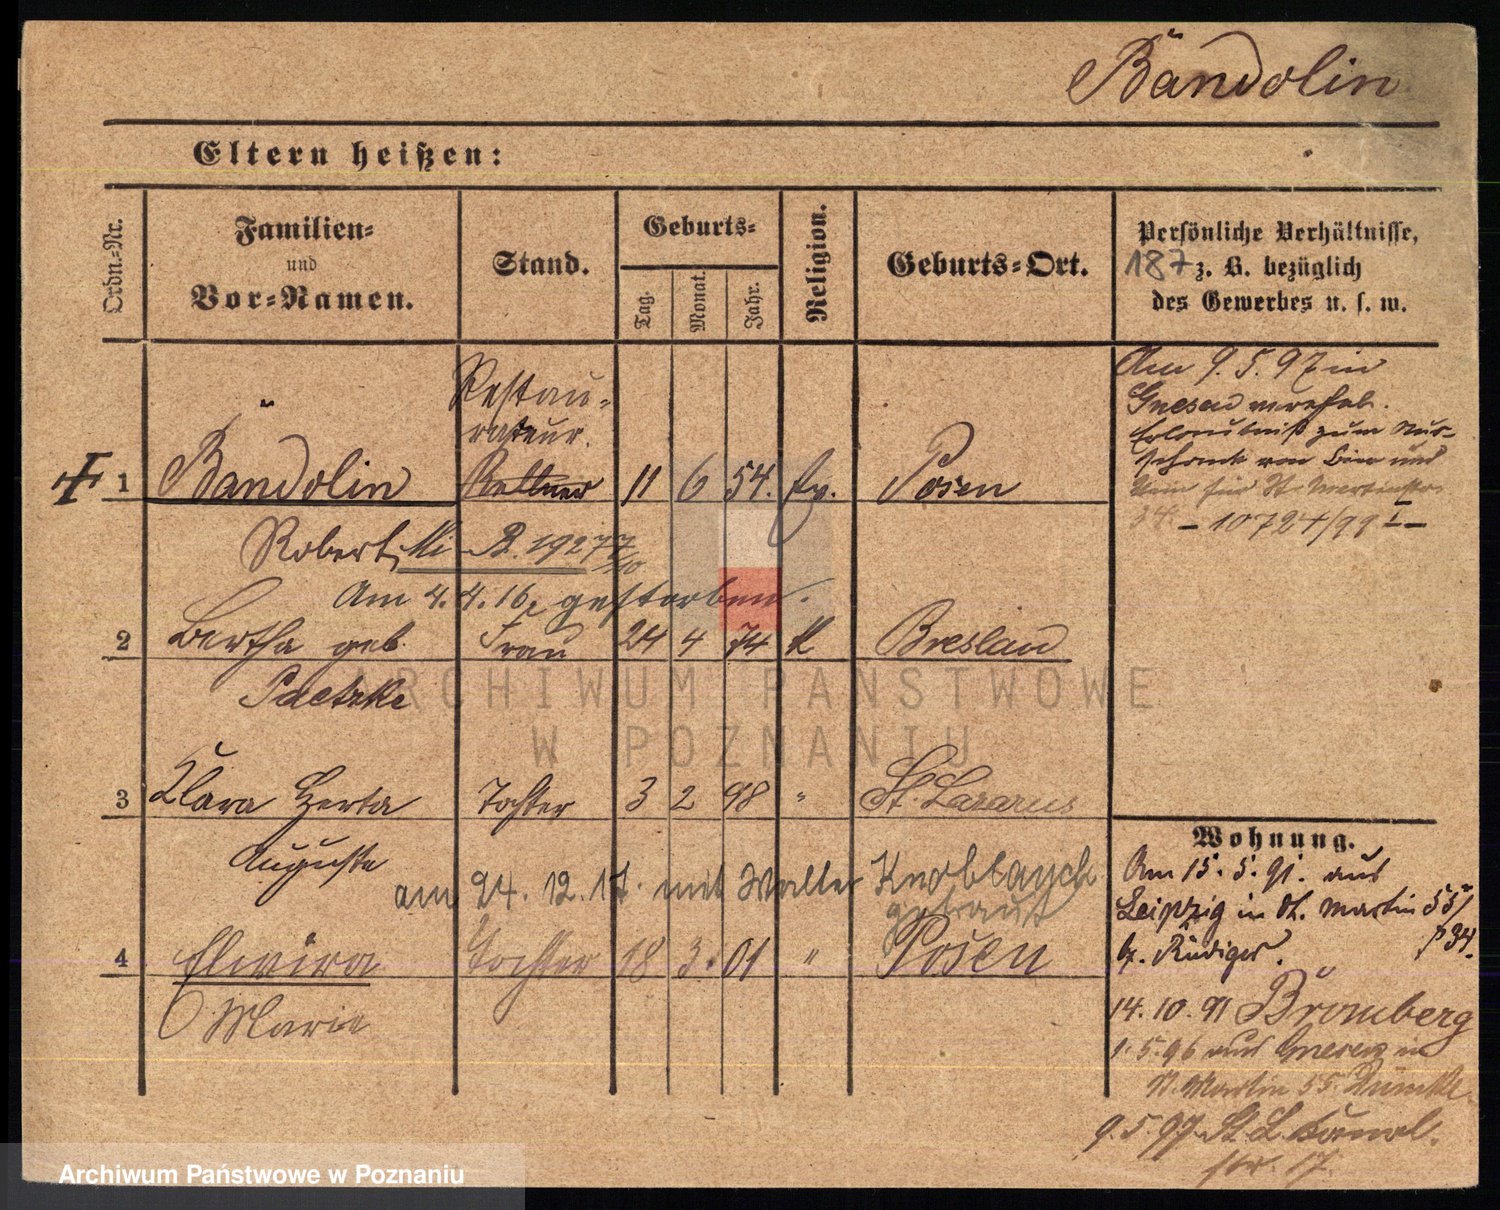 Bändolin
Eltern heißen:
Ordn.-Nr.
Familien-
und
Vor-Namen.
Stand.
Geburts-
Tag.
Monat.
Jahr.
Religion.
Geburts-Ort.
Persönliche Verhältnisse,
187 z. B. bezüglich
des Gewerbes u. s. w.
Am 9.5.97 in
Gnesen verehel.
Erlaubniß zum Aus-
schank von Bier und
Wein für St Martinstr.
34. – 10724/99 I –
Restau-
rateur.
1 Bändolin Kellner 11 6 54. Ev. Posen
Robert, B. 19277
Am 4.4.16. gestorben.
2 Bertha geb. Frau 24 4 74 K Breslau
Paetzke
3 Klara Herta Tochter 3 2 98 " St. Lazarus
Auguste
am 24.12.17. mit Walter Knoblauch
getraut
4 Elwira Tochter 18 3. 01 " Posen
Marie
Wohnung.
Am 15.5.91. aus
Leipzig in St. Martin 55/
b. Rüdiger. 34.
14.10.91 Bromberg
1.5.96 aus Gnesen in
St. Martin 55.
9.5.97. St. L. Kanal-
str. 17.
ARCHIWUM PAŃSTWOWE
W POZNANIU
Archiwum Państwowe w Poznaniu